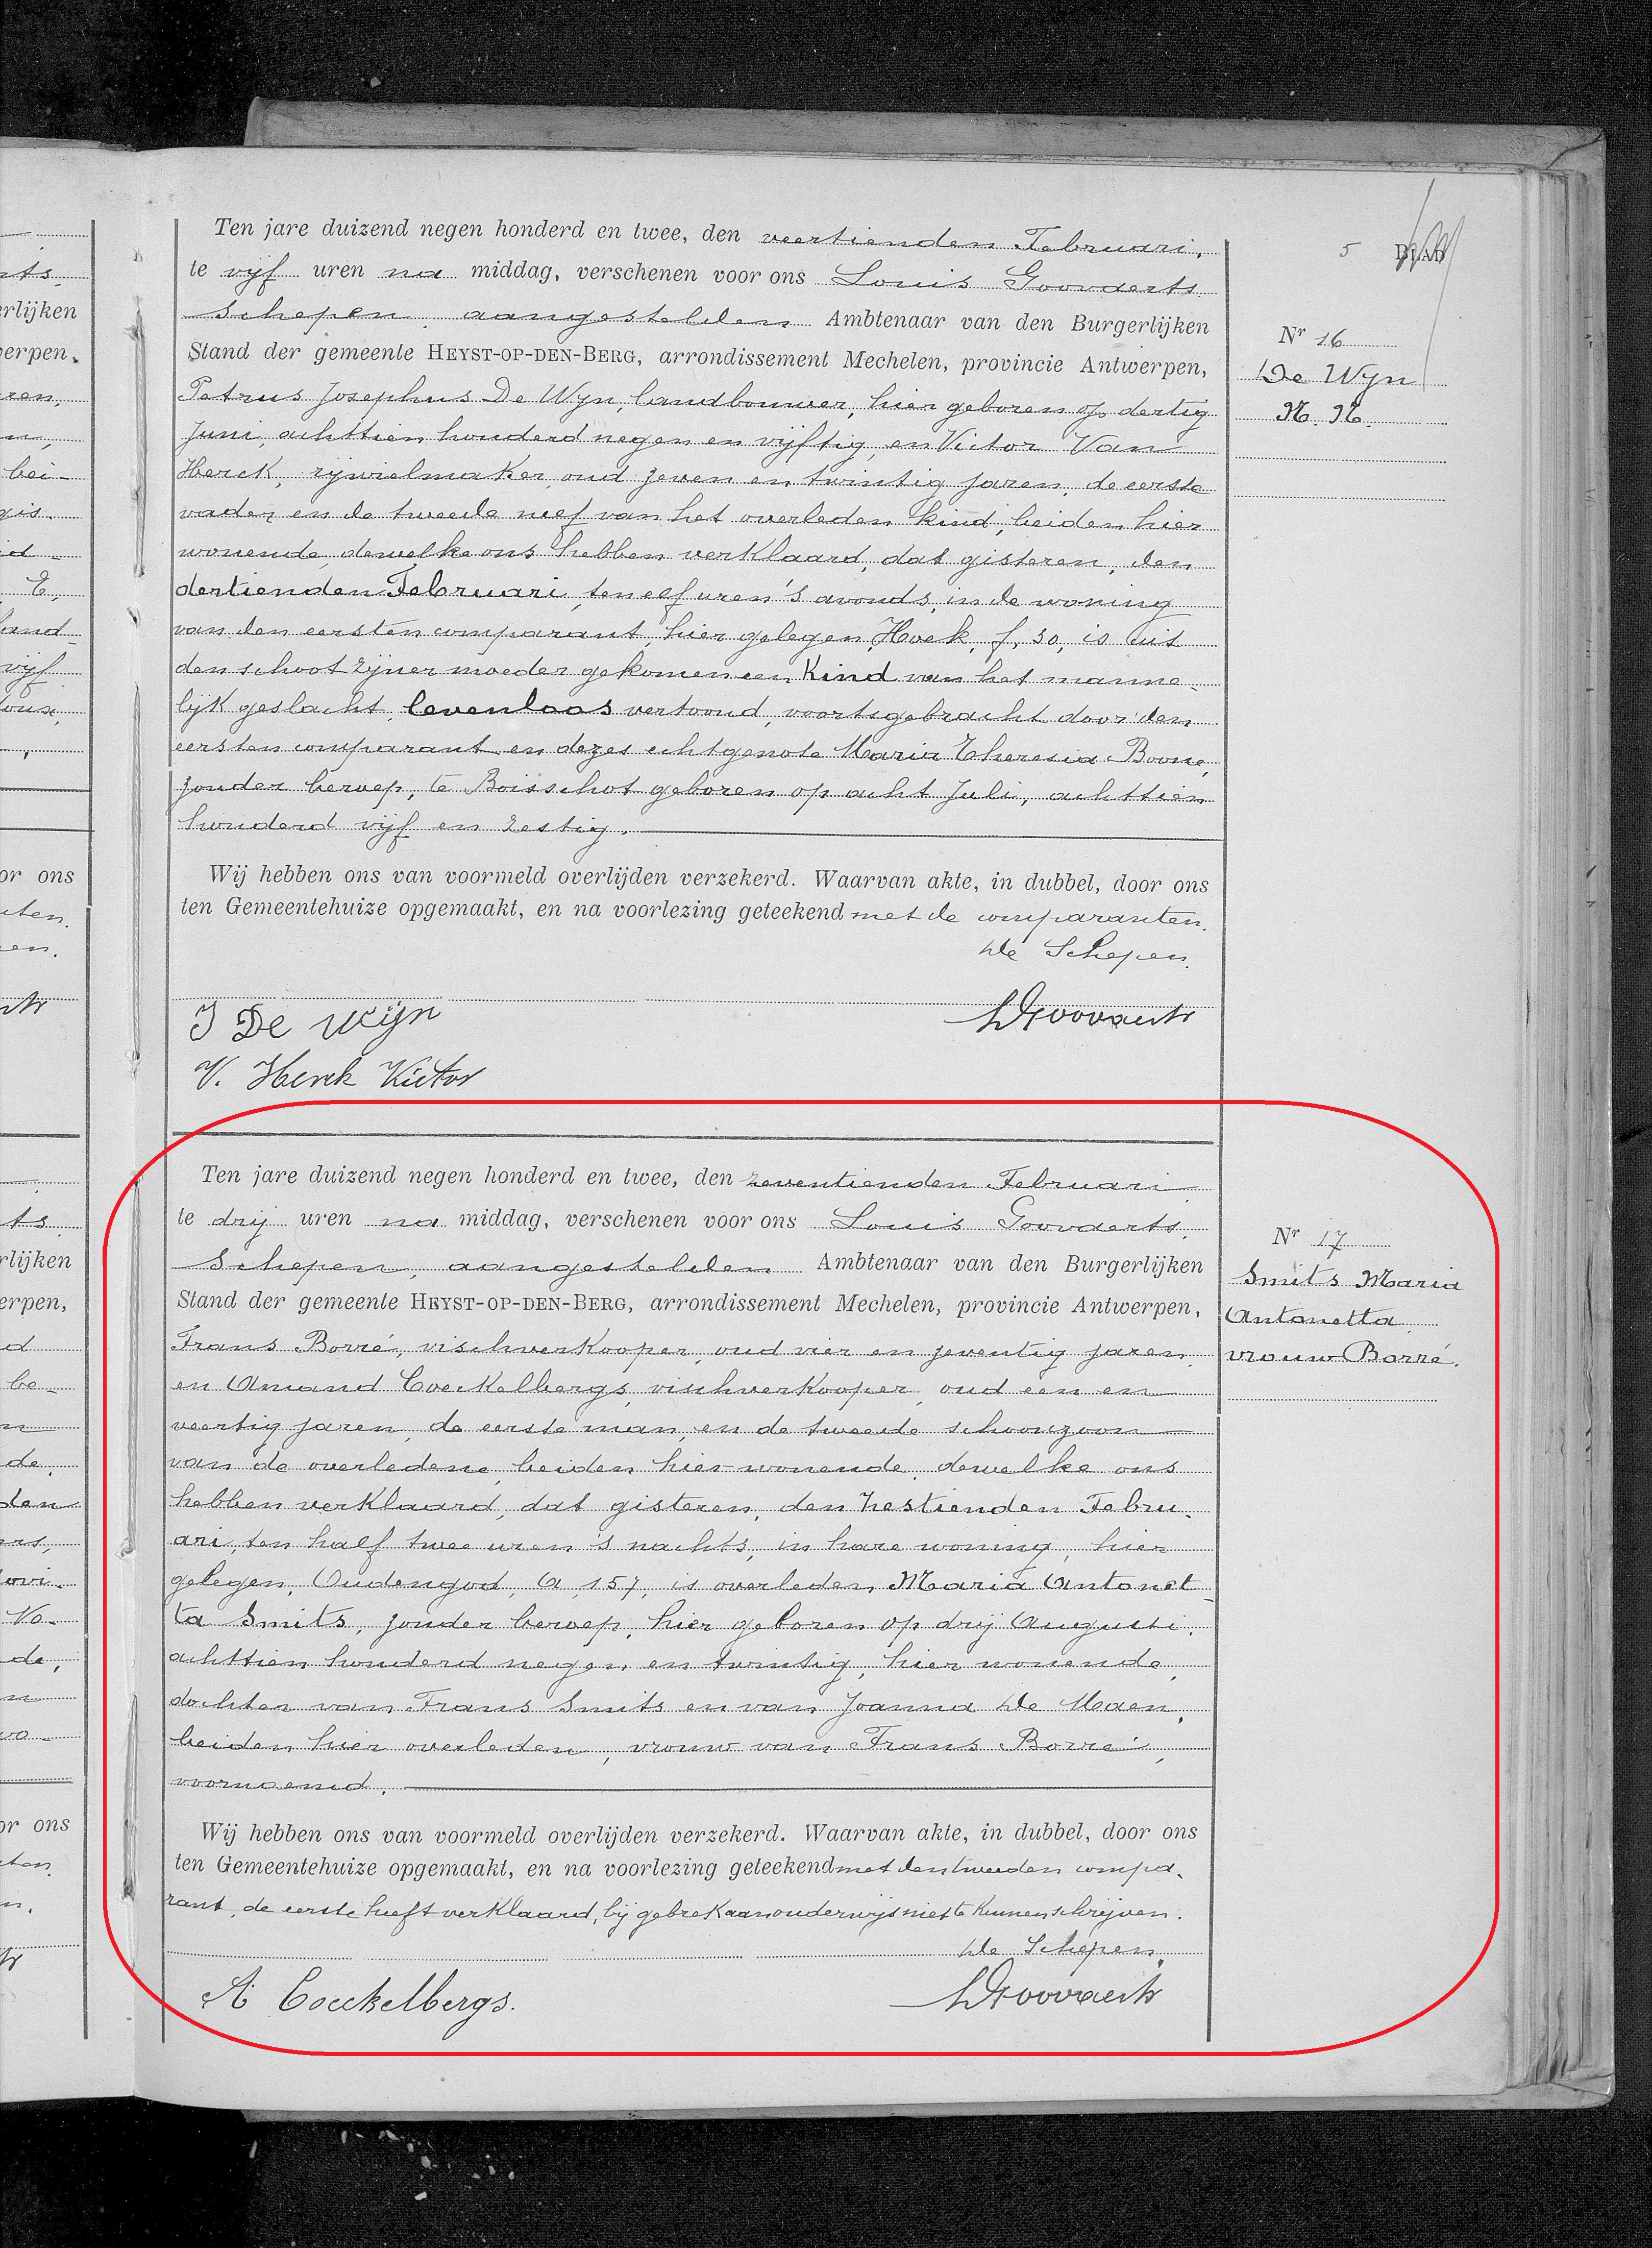 5 BLAD
Ten jare duizend negen honderd en twee, den veertienden Februari,
te vijf uren na middag, verschenen voor ons Louis Goovaerts
Schepen, aangestelden Ambtenaar van den Burgerlijken
Stand der gemeente HEYST-OP-DEN-BERG, arrondissement Mechelen, provincie Antwerpen,
Petrus Josephus De Wyn, landbouwer, hier geboren op dertig
Juni, achttien honderd negen en vijftig, en Victor Van
Herck, rijwielmaker, oud zeven en twintig jaren, de eerste
vader en de tweede neef van het overleden kind, beiden hier
wonende, dewelke ons hebben verklaard, dat gisteren, den
dertienden Februari, ten elf uren 's avonds, in de woning
van den eersten comparant, hier gelegen, Hoek, f, 30, is uit
den schoot zijner moeder gekomen een Kind van het manne-
lijk geslacht, levenloos vertoond, voortsgebracht door den
eersten comparant en dezes echtgenote Maria Theresia Boone,
zonder beroep, te Boisschot geboren op acht Juli, achttien
honderd vijf en zestig.
Wij hebben ons van voormeld overlijden verzekerd. Waarvan akte, in dubbel, door ons
ten Gemeentehuize opgemaakt, en na voorlezing geteekend met de comparanten.
De Schepen,
J De Wijn
LGoovaerts
V. Herck Victor
Nr 16
De Wyn
N. N.
Ten jare duizend negen honderd en twee, den zeventienden Februari
te drij uren na middag, verschenen voor ons Louis Goovaerts,
Schepen, aangestelden Ambtenaar van den Burgerlijken
Stand der gemeente HEYST-OP-DEN-BERG, arrondissement Mechelen, provincie Antwerpen,
Frans Borré, vischverkooper, oud vier en zeventig jaren
en Amand Coeckelbergs, vischverkooper, oud een en
veertig jaren, de eerste man, en de tweede schoonzoon
van de overledene, beiden hier wonende, dewelke ons
hebben verklaard, dat gisteren, den zestienden Febru-
ari, ten half twee uren 's nachts, in hare woning, hier
gelegen, Oudengod, A, 157, is overleden Maria Antonet-
ta Smits, zonder beroep, hier geboren op drij Augusti,
achttien honderd negen en twintig, hier wonende,
dochter van Frans Smits en van Joanna De Maen,
beiden hier overleden, vrouw van Frans Borré,
voornoemd.
Wij hebben ons van voormeld overlijden verzekerd. Waarvan akte, in dubbel, door ons
ten Gemeentehuize opgemaakt, en na voorlezing geteekend met den tweeden compa-
rant, de eerste heeft verklaard, bij gebrek aan onderwijs niet te kunnen schrijven.
De Schepen,
A Coeckelbergs.
LGoovaerts
Nr 17
Smits Maria
Antonetta
vrouw Borré.